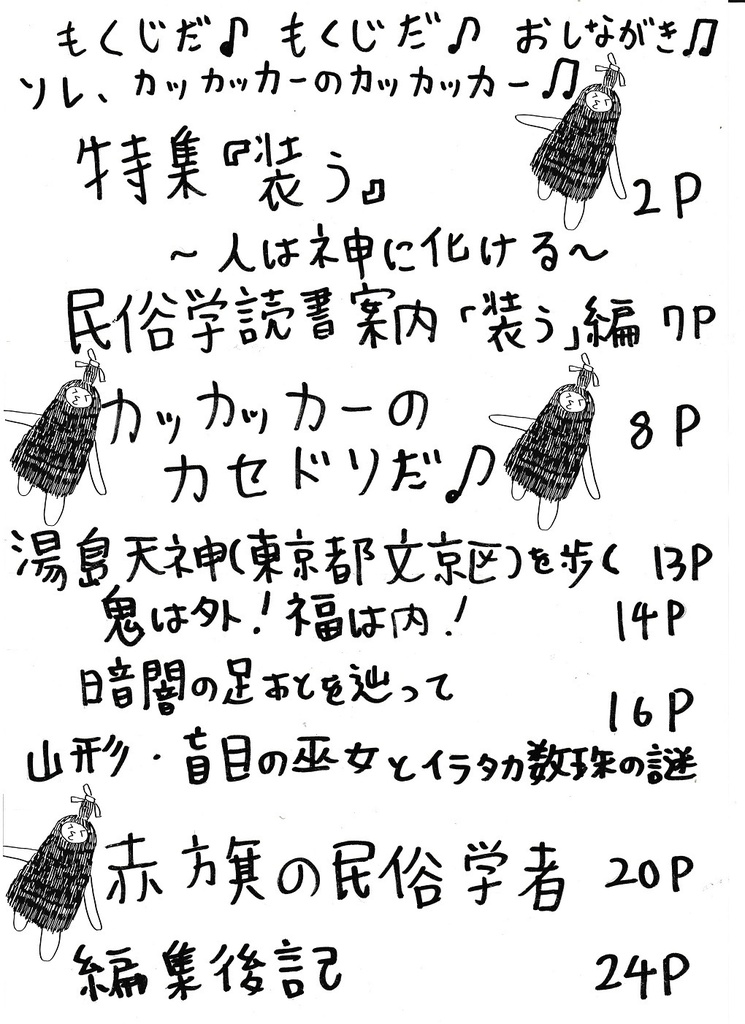 もくじだ♪ もくじだ♪ おしながき♫
ソレ、カッカッカーのカッカッカー♫
特集『装う』 2P
~人は神に化ける~
民俗学読書案内「装う」編 7P
カッカッカーの
カセドリだ♪ 8P
湯島天神(東京都文京区)を歩く 13P
鬼は外!福は内! 14P
暗闇の足おとを辿って 16P
山形・盲目の巫女とイラタカ数珠の謎
赤旗の民俗学者 20P
編集後記 24P